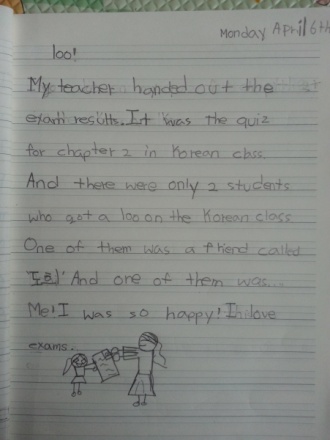 Monday April 6th
100!
My teacher handed out the
exam results. It was the quiz
for chapter 2 in Korean class
And there were only 2 students
who got a 100 on the Korean class
One of them was a friend called
And one of them was...
Me! I was so happy! I love
exams.